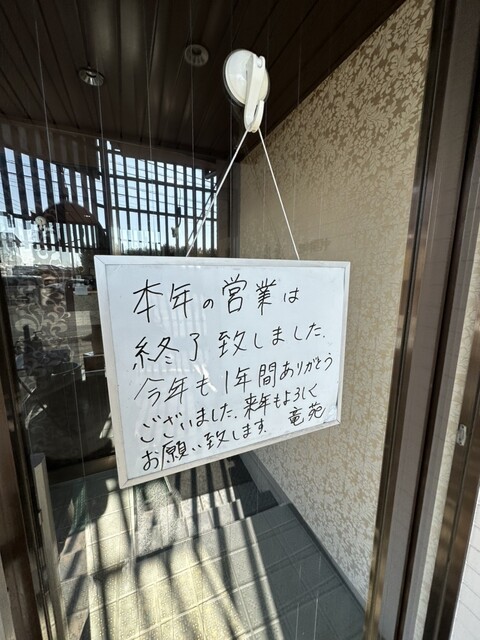 本年の営業は
終了致しました、
今年も1年間ありがとう
ございました、来年もよろしく
お願い致します。 竜苑